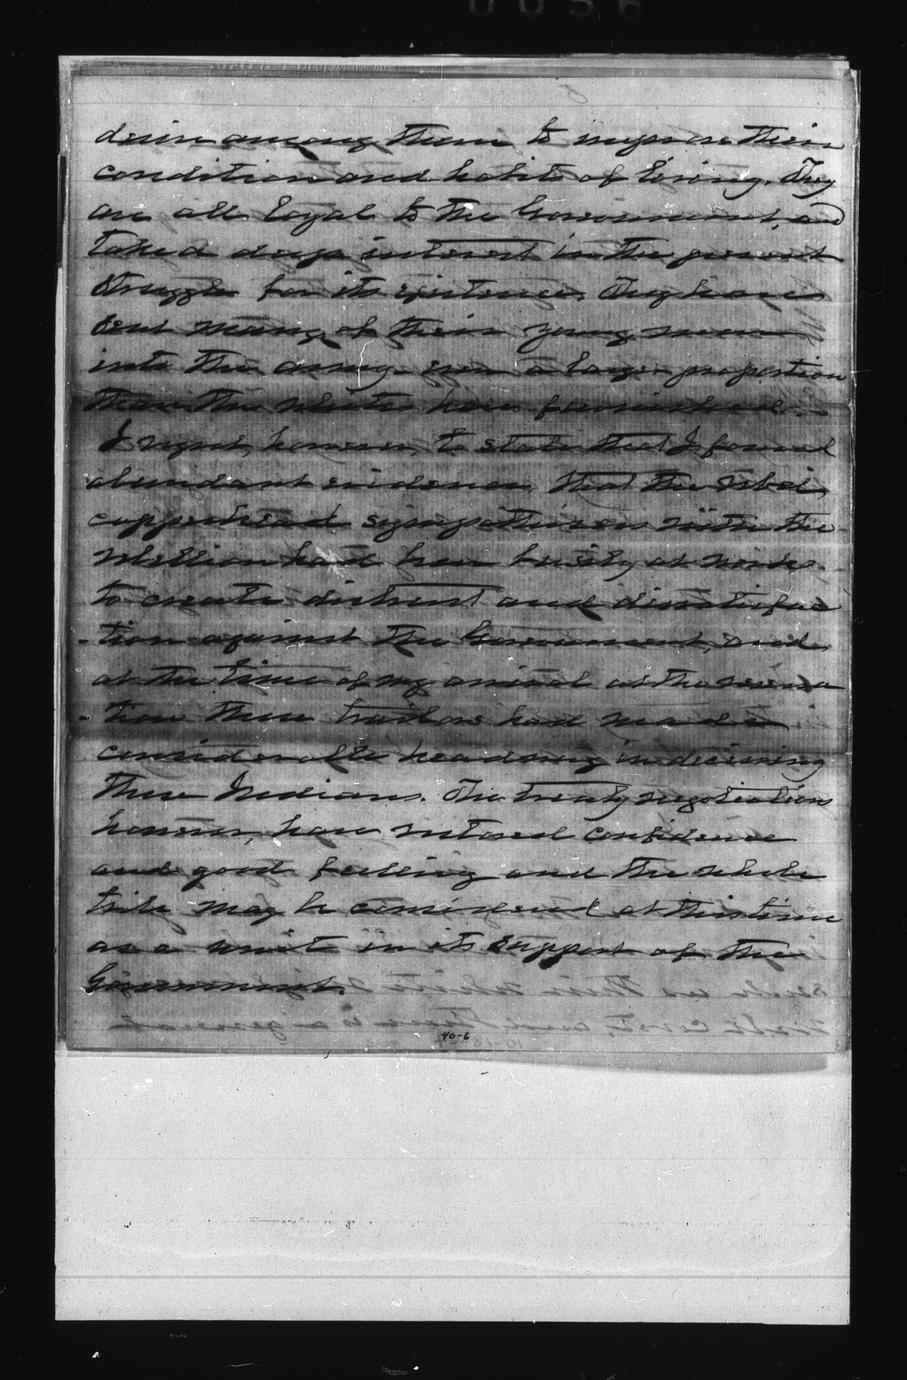 desire among them to improve their
condition and habits of living. They
are all loyal to the Government, and
take a deep interest in the present
struggle for its existence. They have
sent many of their young men
into the army - even a larger proportion
than the whites have furnished.
I regret, however, to state that I found
abundant evidence that the
copperhead sympathisers with the
rebellion had been busily at work
to create distrust and dissatisfac
-tion against the Government, and
at the time of my arrival at the reserva
-tion these traitors had made
considerable headway in deceiving
these Indians. The treaty negotiations
however, have restored confidence
and good feeling and the whole
tribe may be considered at this time
as a unit in its support of the
Government.
40-6